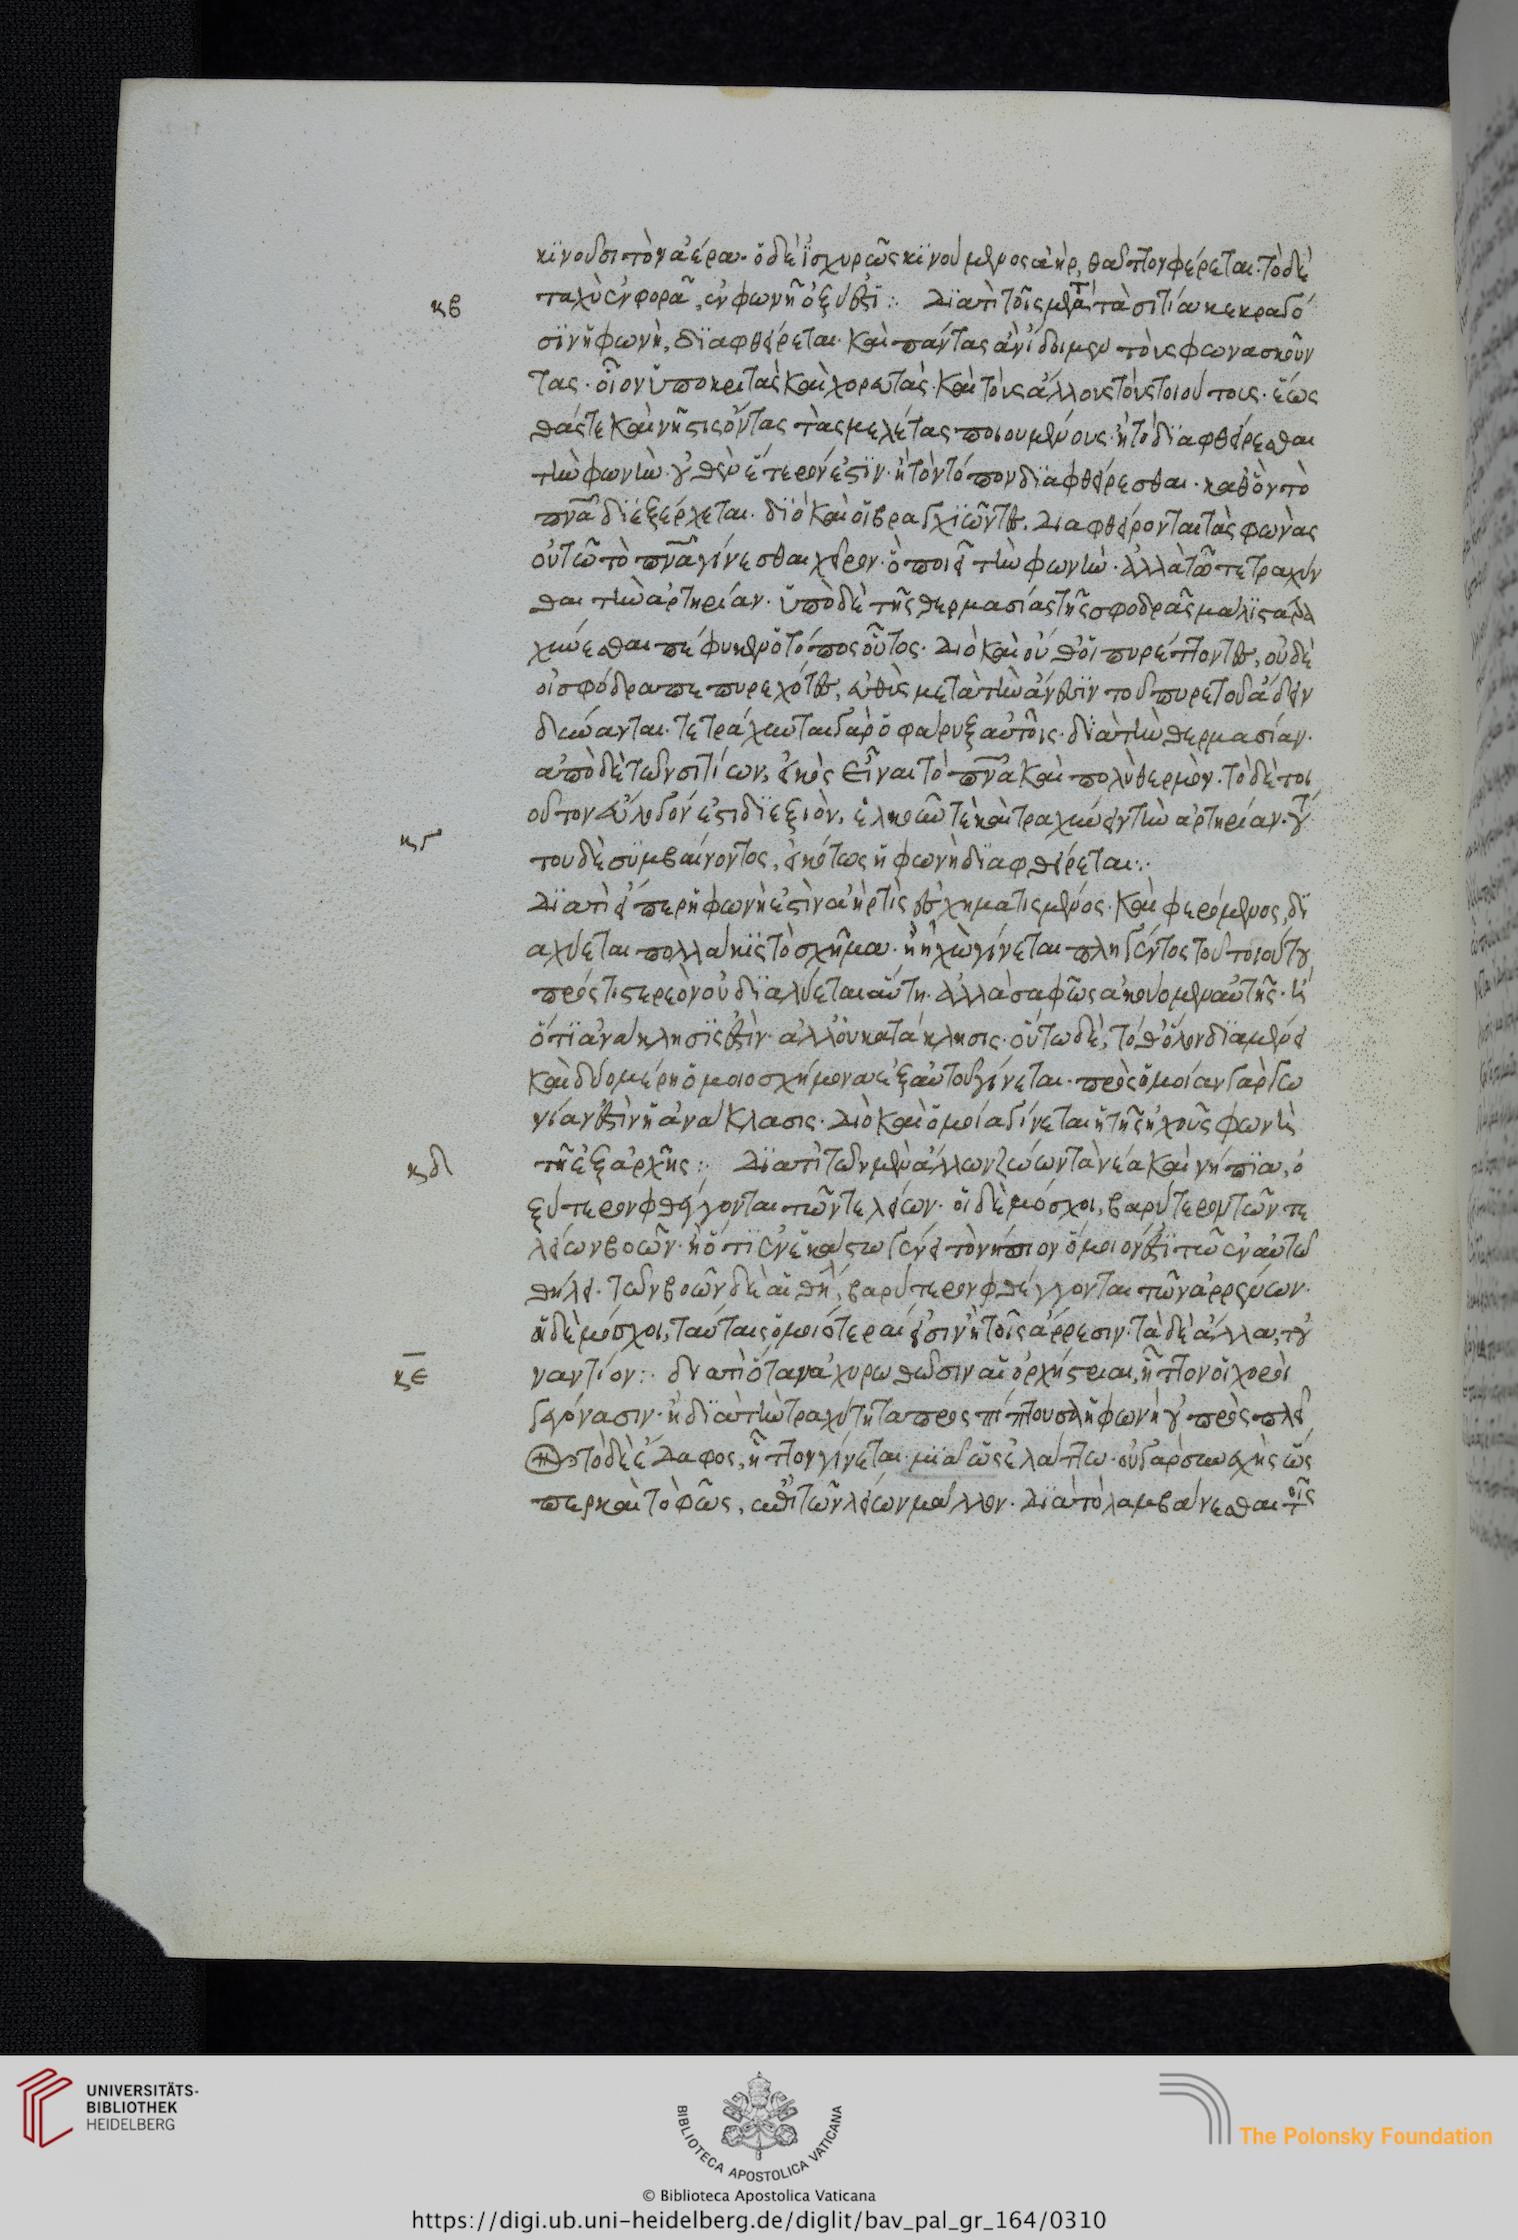 κινοῦσι τὸν ἀέρα· ὁ δὲ ἰσχυρῶς κινούμενος ἀὴρ, θᾶττον φέρεται· τὸ δὲ
κβ
ταχὺ ἐν φορᾶ, ἐν φωνῆ ὀξύ ἐστι: Διατί τοῖς μετὰ τὰ σιτία κεκραγό
σιν ἡ φωνὴ, διαφθείρεται· καὶ πάντας ἂν ἴδοιμεν τοὺς φωνασκοῦν
τας· οἷον ὑποκριτὰς καὶ χορευτὰς· καὶ τοὺς ἄλλους τοὺς τοιούτους· ἕω
θέν τε καὶ νήστεις ὄντας τὰς μελέτας ποιουμένους· ἢ τὸ διαφθείρεσθαι
τὴν φωνὴν· οὐθὲν ἕτερόν ἐστιν· ἢ τὸν τόπον διαφθείρεσθαι· καθ' ὃν τὸ
πνα διεξέρχεται· διὸ καὶ οἱ βραγχιῶντες, διαφθείρονται τὰς φωνὰς
οὐ τῶ τὸ πνα γίνεσθαι χεῖρον· ὃ ποιεῖ τὴν φωνὴν· ἀλλὰ τῶ τετραχύν
θαι τὴν ἀρτηρίαν· ὑπὸ δὲ τῆς θερμασίας τῆς σφοδρᾶς μάλιστα τρα
χύνεσθαι πέφυκεν ὁ τόπος οὗτος· διὸ καὶ οὔθ' οἱ πυρέττοντες, οὐδὲ
οἱ σφόδρα πεπυρεχότες, εὐθὺς μετὰ τὴν ἄνεσιν τοῦ πυρετοῦ ἄδειν
δύνανται· τετράχυνται γὰρ ὁ φάρυξ αὐτοῖς· διὰ τὴν θερμασίαν·
ἀπὸ δὲ τῶν σιτίων, εἰκὸς εἶναι τὸ πνα καὶ πολὺ θερμὸν· τὸ δὲ τοι
κγ
του δὲ συμβαίνοντος, εἰκότως ἡ φωνὴ διαφθείρεται:
Διατί εἴπερ ἡ φωνὴ ἐστὶν ἀήρ τις ἐσχηματισμένος· καὶ φερόμενος, δι
αλύεται πολλάκις τὸ σχῆμα· ἡ ἠχὼ γίνεται πληγέντος τοῦ τοιούτου
πρός τι στερεὸν οὐ διαλύεται αὕτη· ἀλλὰ σαφῶς ἀκούομεν αὐτῆς· ἢ
ὅτι ἀνάκλησις ἐστὶν· ἀλλ' οὐ κατάκλησις· οὕτω δὲ, τό θ' ὅλον διαμένει
καὶ δύο μέρη ὁμοιοσχήμονα ἐξ αὐτοῦ γίνεται· πρὸς ὁμοίαν γὰρ γω
νίαν ἐστὶν ἡ ἀνάκλασις· διὸ καὶ ὁμοία γίνεται ἡ τῆς ἠχοῦς φωνὴ
κδ
τῆ ἐξ ἀρχῆς: Διατί τῶν μὲν ἄλλων ζώων τὰ νέα καὶ νήπια, ὀ
ξύτερον φθέγγονται τῶν τελείων· οἱ δὲ μόσχοι, βαρύτερον τῶν τε
λείων βοῶν· ἢ ὅτι ἐν ἑκάστω γένει τὸ νήπιον ὅμοιόν ἐστι τῶ ἐν αὐτῶ
θήλει· τῶν βοῶν δὲ αἱ θήλ, βαρύτερον φθέγγονται τῶν ἀρρένων·
οἱ δὲ μόσχοι, ταύταις ὁμοιότεραί εἰσιν ἢ τοῖς ἄρρεσιν· τὰ δὲ ἄλλα, του
κε
ναντίον: διατί ὅταν ἀχυρωθῶσιν αἱ ὀρχῆστραι, ἧττον οἱ χοροὶ
γεγόνασιν· ἢ διὰ τὴν τραχύτητα προσπίπτουσα ἡ φωνὴ οὐ πρὸς πλεῖ
τὸ δὲ ἔδαφος, ἧττον γίνεται μία ὡς ἐλάττω· οὐ γὰρ συνεχὴς ὥς
περ καὶ τὸ φῶς, ἐπὶ τῶν λείων μᾶλλον· διὰ τὸ λαμβάνεσθαι τοῖς
UNIVERSITÄTS-
BIBLIOTHEK
HEIDELBERG
BIBLIOTECA APOSTOLICA VATICANA
The Polonsky Foundation
© Biblioteca Apostolica Vaticana
https://digi.ub.uni-heidelberg.de/diglit/bav_pal_gr_164/0310